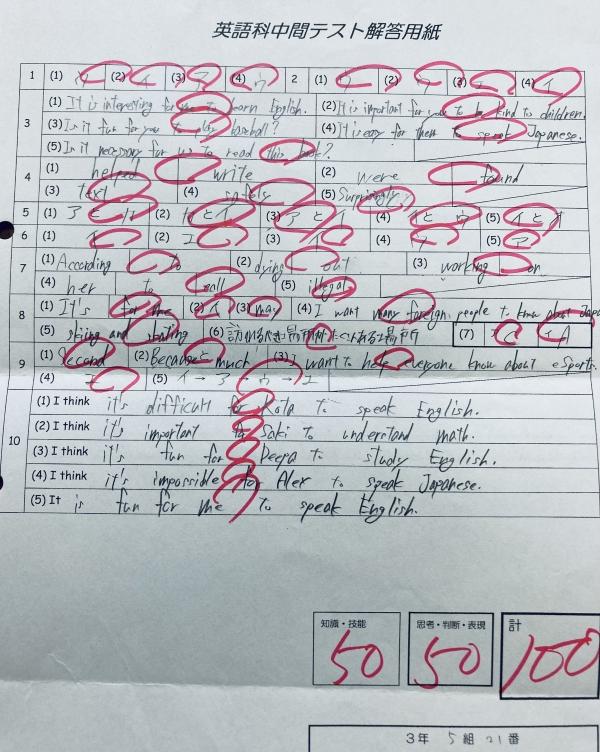 英語科中間テスト解答用紙
1 (1) (2) イ (3) ア (4) ウ 2 (1) (2) ウ (3) エ (4) イ
3 (1) It is interesting for me to learn English. (2) It is important for you to be kind to children.
(3) Is it fun for you to play baseball? (4) It is easy for them to speak Japanese.
(5) Is it necessary for us to read this book?
4 (1) helped write (2) were found
(3) text (4) (5) Surprisingly
5 (1) ア と (2) と イ (3) ア と イ (4) イ と ウ (5) イ と
6 (1) イ (2) エ (3) イ (4) ウ (5) ア
7 (1) According to (2) dying out (3) working on
(4) her to call (5) illegal
8 (1) It's for me (2) イ (3) may (4) I want many foreign people to know about
(5) skiing and skating (6) 訪れるべき場所 (7) C A
9 (1) Second (2) Because much (3) I want to help everyone know about eSports.
(4) エ (5) イ → ア → ウ → エ
10 (1) I think it's difficult for Kota to speak English.
(2) I think it's important for Saki to understand math.
(3) I think it's fun for Deepa to study English.
(4) I think it's impossible for Alex to speak Japanese.
(5) It is fun for me to speak English.
知識・技能 思考・判断・表現 計
50 50 100
3年 5組 21番